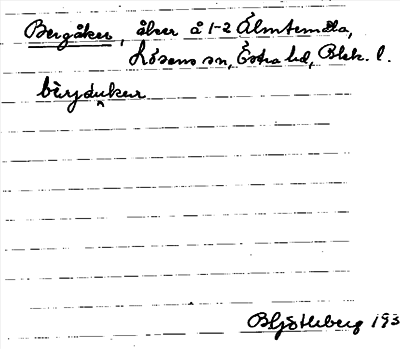 Bergåker, åker å 1-2 Älmtemåla,
Lösens sn, Östra hd, Blek. l.
bärjåuker
B Hjöstleberg 193